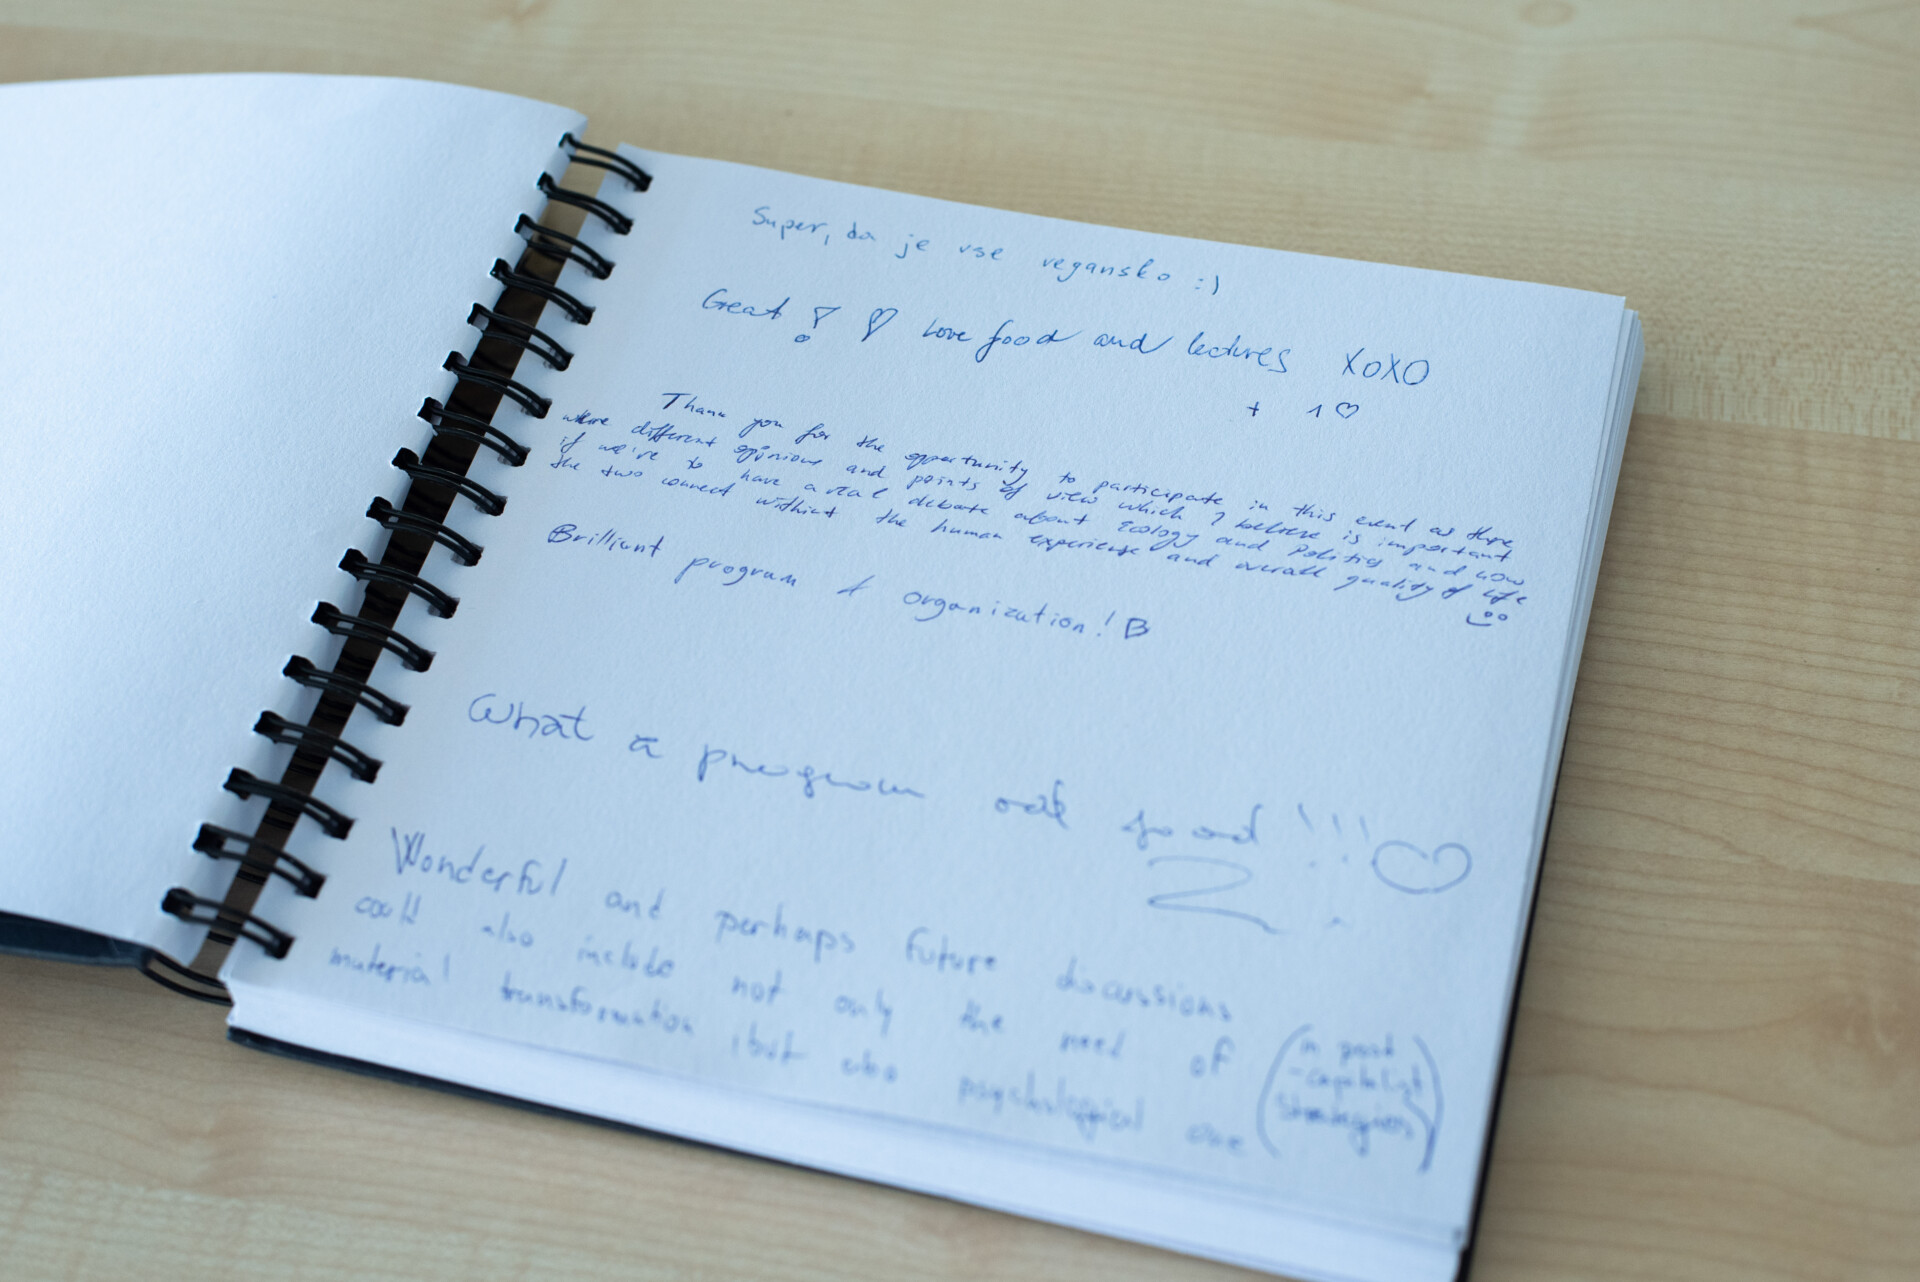 Super, da je vse vegansko :)
Great! ♡ Love food and lectures XOXO
+ 1 ♡
Thank you for the opportunity to participate in this event as there
where different opinions and points of view which I believe is important
if we're to have a real debate about Ecology and Politics and how
the two connect within the human experience and overall quality of life
Brilliant program & organization! B
What a program and food !!! ♡
Wonderful and perhaps future discussions
could also include not only the need of
material transformation, but also psychological one
(in post
-capitalist
strategies)